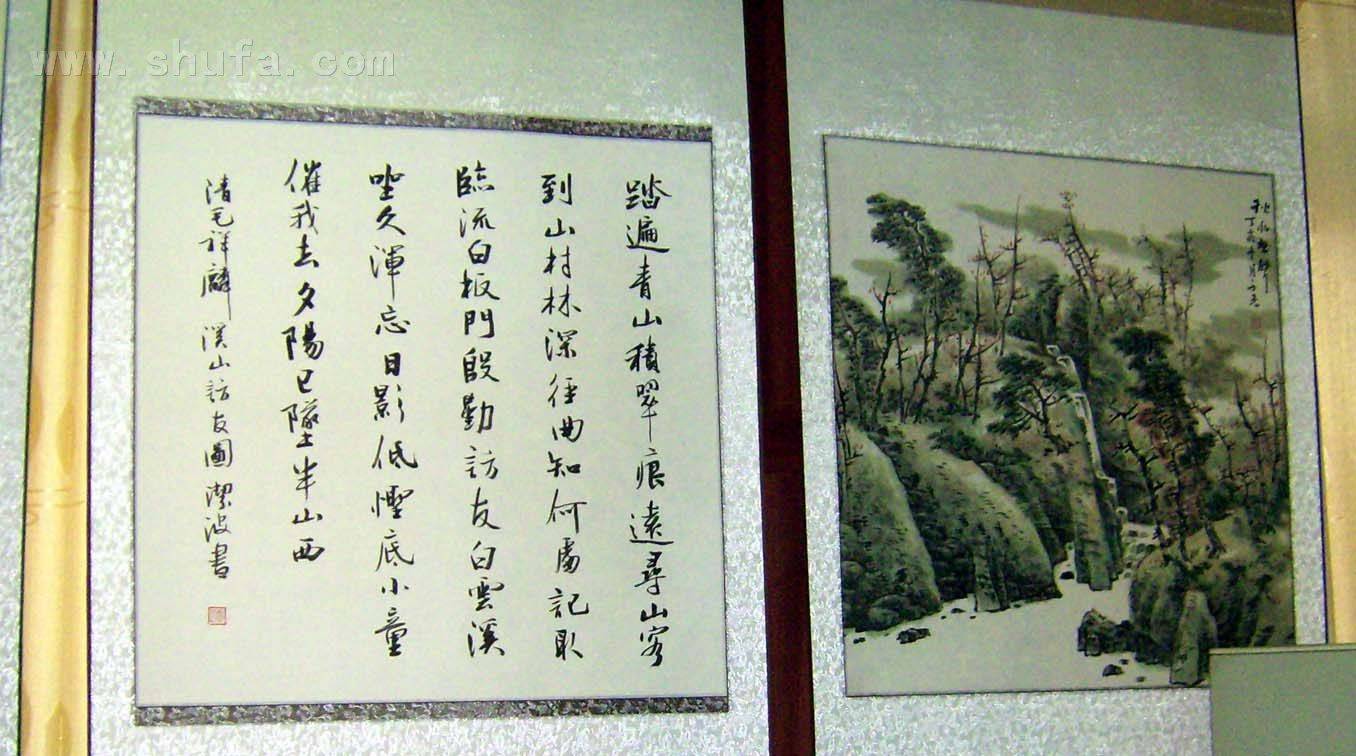 www.shufa.com
踏遍青山積翠痕遠尋山客
到山村林深徑曲知何處記取
臨流白板門殷勤訪友白雲溪
坐久渾忘日影低慳底小童
催我去夕陽已墜半山西
清毛祥麟溪山訪友圖潔波書